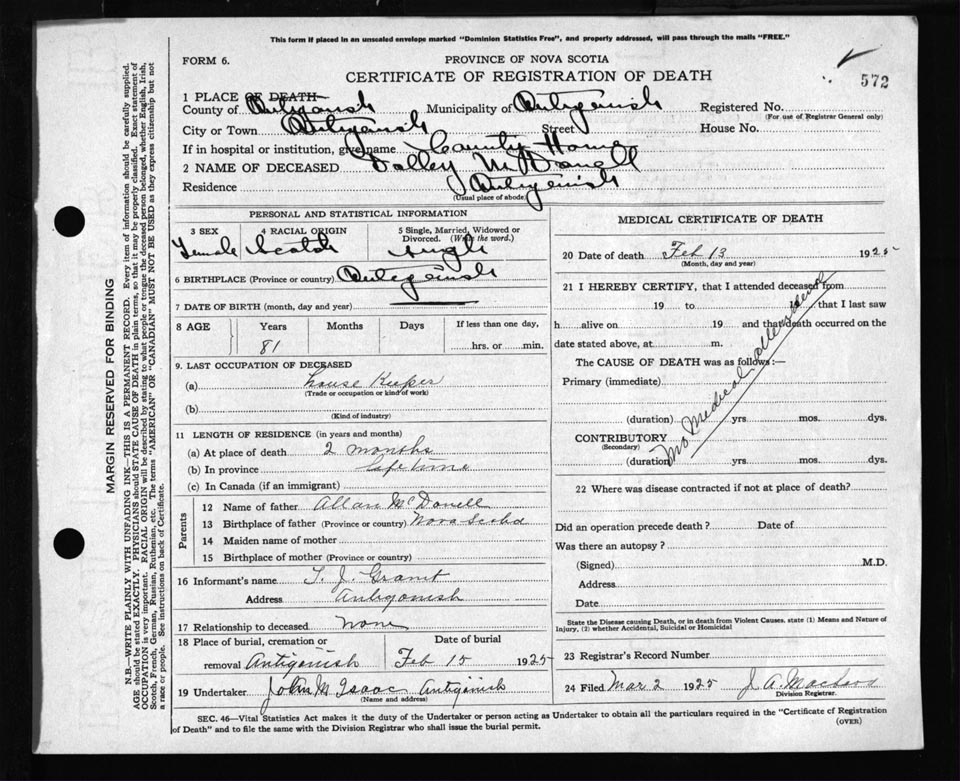 This form if placed in an unsealed envelope marked "Dominion Statistics Free", and properly addressed, will pass through the mails "FREE."
FORM 6.
PROVINCE OF NOVA SCOTIA
CERTIFICATE OF REGISTRATION OF DEATH
572
1 PLACE OF DEATH—
County of Antigonish Municipality of Antigonish Registered No.
(For use of Registrar General only)
City or Town Antigonish Street House No.
If in hospital or institution, give name County Home
2 NAME OF DECEASED McDonell
Residence Antigonish
(Usual place of abode)
PERSONAL AND STATISTICAL INFORMATION
3 SEX 4 RACIAL ORIGIN 5 Single, Married, Widowed or Divorced. (Write the word.)
Female Scotch Single
6 BIRTHPLACE (Province or country) Antigonish
7 DATE OF BIRTH (month, day and year)
8 AGE Years Months Days If less than one day,
81 hrs. or min.
9. LAST OCCUPATION OF DECEASED
(a) House Keeper
(Trade or occupation or kind of work)
(b)
(Kind of industry)
11 LENGTH OF RESIDENCE (in years and months)
(a) At place of death 2 months
(b) In province Life time
(c) In Canada (if an immigrant)
Parents
12 Name of father Allan McDonell
13 Birthplace of father (Province or country) Nova Scotia
14 Maiden name of mother
15 Birthplace of mother (Province or country)
16 Informant's name T. J. Grant
Address Antigonish
17 Relationship to deceased None
18 Place of burial, cremation or removal Antigonish
Date of burial
Feb 15 1925
19 Undertaker John McIsaac Antigonish
(Name and address)
MEDICAL CERTIFICATE OF DEATH
20 Date of death Feb 13 1925
(Month, day and year)
21 I HEREBY CERTIFY, that I attended deceased from
19 to 1 , that I last saw
h alive on 19 and that death occurred on the
date stated above, at m.
The CAUSE OF DEATH was as follows:—
Primary (immediate)
(duration) yrs. mos. dys.
CONTRIBUTORY
(Secondary)
(duration) yrs. mos. dys.
No Medical Attendance
22 Where was disease contracted if not at place of death?
Did an operation precede death? Date of
Was there an autopsy?
(Signed) M.D.
Address
Date
State the Disease causing Death, or in death from Violent Causes, state (1) Means and Nature of
Injury, (2) whether Accidental, Suicidal or Homicidal
23 Registrar's Record Number
24 Filed Mar 2 1925 J. A. Macleod
Division Registrar.
SEC. 46—Vital Statistics Act makes it the duty of the Undertaker or person acting as Undertaker to obtain all the particulars required in the "Certificate of Registration
of Death" and to file the same with the Division Registrar who shall issue the burial permit.
(OVER)
MARGIN RESERVED FOR BINDING
N.B.—WRITE PLAINLY WITH UNFADING INK—THIS IS A PERMANENT RECORD. Every item of information should be carefully supplied.
AGE should be stated EXACTLY. PHYSICIANS should STATE CAUSE OF DEATH in plain terms, so that it may be properly classified. Exact statement of
OCCUPATION is very important. RACIAL ORIGIN will be described by stating to what people or tongue the deceased person belonged, whether English, Irish,
Scotch, French, German, Russian, Ruthenian, etc. The terms "AMERICAN" OR "CANADIAN" MUST NOT BE USED as they express citizenship but not
a race or people. See instructions on back of Certificate.